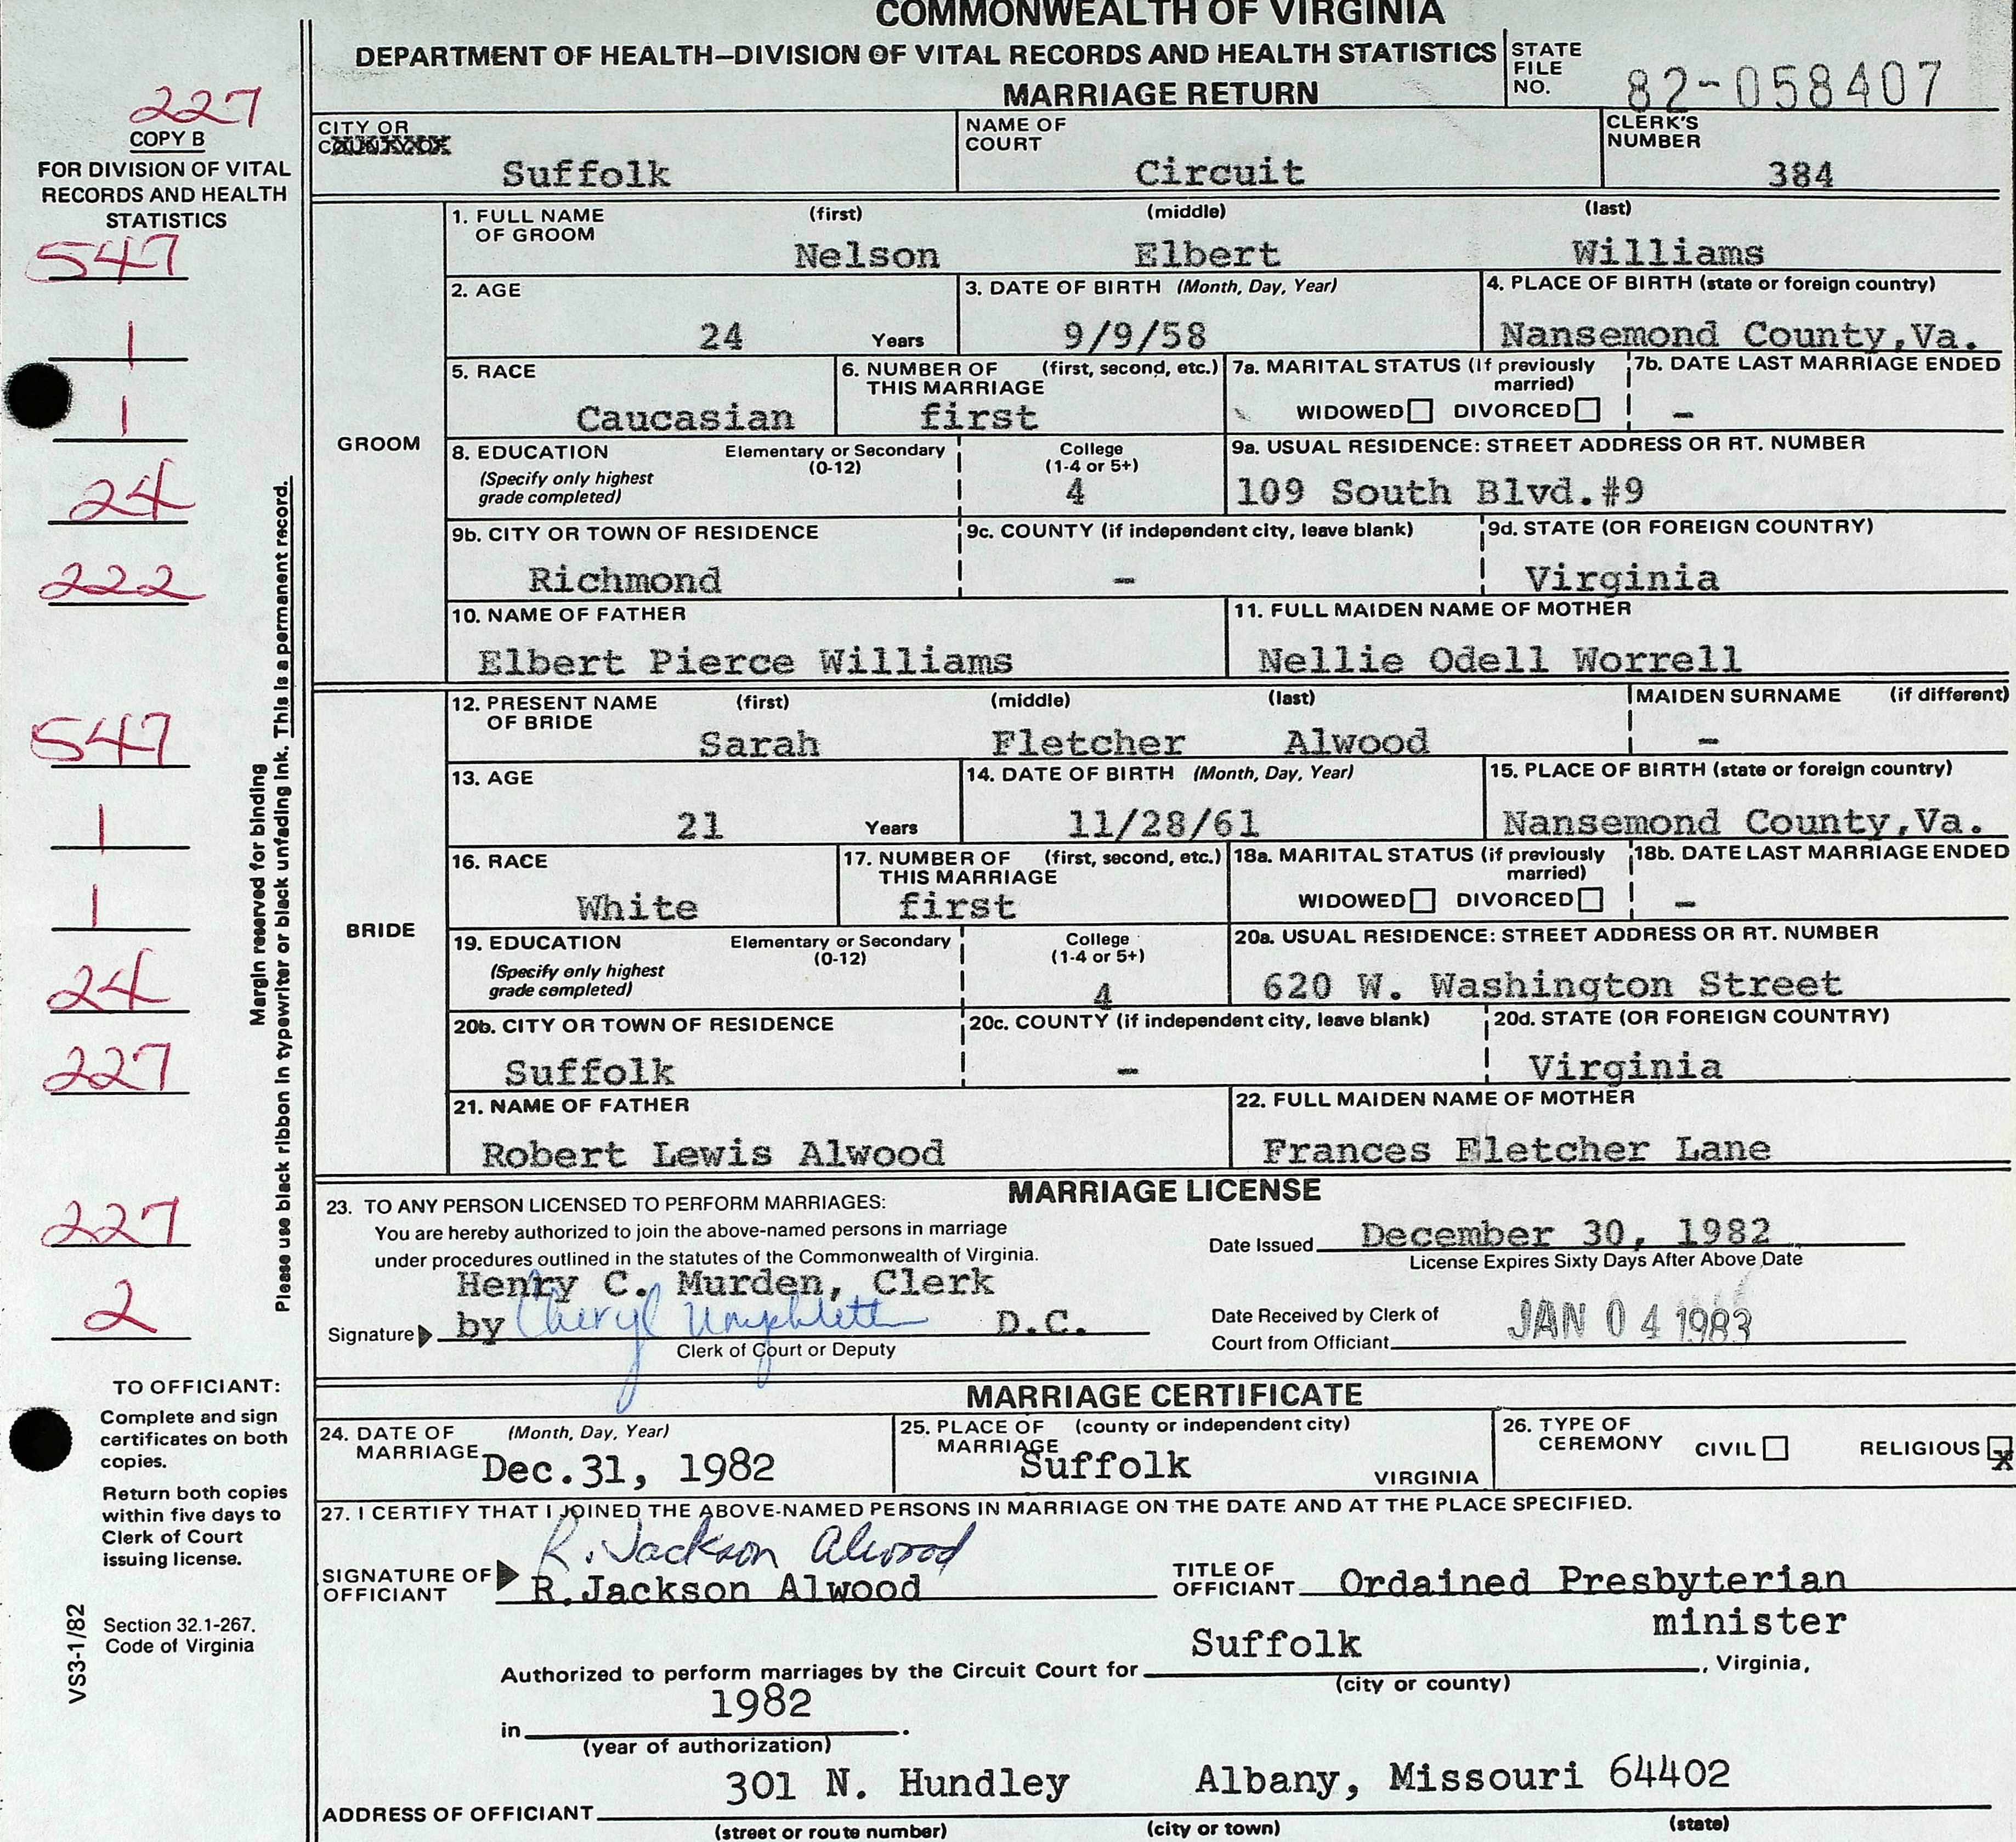 COMMONWEALTH OF VIRGINIA
DEPARTMENT OF HEALTH—DIVISION OF VITAL RECORDS AND HEALTH STATISTICS
MARRIAGE RETURN
STATE FILE NO. 82-058407
227
COPY B
FOR DIVISION OF VITAL
RECORDS AND HEALTH
STATISTICS
547
1
1
24
222
547
1
1
24
227
227
2
Margin reserved for binding
Please use black ribbon in typewriter or black unfading ink. This is a permanent record.
TO OFFICIANT:
Complete and sign
certificates on both
copies.
Return both copies
within five days to
Clerk of Court
issuing license.
Section 32.1-267,
Code of Virginia
VS3-1/82
CITY OR
COUNTY OF Suffolk
NAME OF COURT Circuit
CLERK'S NUMBER 384
GROOM
1. FULL NAME OF GROOM (first) (middle) (last)
Nelson Elbert Williams
2. AGE 24 Years
3. DATE OF BIRTH (Month, Day, Year) 9/9/58
4. PLACE OF BIRTH (state or foreign country) Nansemond County,Va.
5. RACE Caucasian
6. NUMBER OF THIS MARRIAGE (first, second, etc.) first
7a. MARITAL STATUS (if previously married) WIDOWED DIVORCED
7b. DATE LAST MARRIAGE ENDED -
8. EDUCATION (Specify only highest grade completed) Elementary or Secondary (0-12) College (1-4 or 5+) 4
9a. USUAL RESIDENCE: STREET ADDRESS OR RT. NUMBER 109 South Blvd.#9
9b. CITY OR TOWN OF RESIDENCE Richmond
9c. COUNTY (if independent city, leave blank) -
9d. STATE (OR FOREIGN COUNTRY) Virginia
10. NAME OF FATHER Elbert Pierce Williams
11. FULL MAIDEN NAME OF MOTHER Nellie Odell Worrell
BRIDE
12. PRESENT NAME OF BRIDE (first) (middle) (last) MAIDEN SURNAME (if different)
Sarah Fletcher Alwood -
13. AGE 21 Years
14. DATE OF BIRTH (Month, Day, Year) 11/28/61
15. PLACE OF BIRTH (state or foreign country) Nansemond County,Va.
16. RACE White
17. NUMBER OF THIS MARRIAGE (first, second, etc.) first
18a. MARITAL STATUS (if previously married) WIDOWED DIVORCED
18b. DATE LAST MARRIAGE ENDED -
19. EDUCATION (Specify only highest grade completed) Elementary or Secondary (0-12) College (1-4 or 5+) 4
20a. USUAL RESIDENCE: STREET ADDRESS OR RT. NUMBER 620 W. Washington Street
20b. CITY OR TOWN OF RESIDENCE Suffolk
20c. COUNTY (if independent city, leave blank) -
20d. STATE (OR FOREIGN COUNTRY) Virginia
21. NAME OF FATHER Robert Lewis Alwood
22. FULL MAIDEN NAME OF MOTHER Frances Fletcher Lane
MARRIAGE LICENSE
23. TO ANY PERSON LICENSED TO PERFORM MARRIAGES:
You are hereby authorized to join the above-named persons in marriage
under procedures outlined in the statutes of the Commonwealth of Virginia.
Date Issued December 30, 1982
License Expires Sixty Days After Above Date
Henry C. Murden, Clerk
Signature by Cheryl Umphlett D.C.
Clerk of Court or Deputy
Date Received by Clerk of
Court from Officiant JAN 04 1983
MARRIAGE CERTIFICATE
24. DATE OF MARRIAGE (Month, Day, Year) Dec.31, 1982
25. PLACE OF MARRIAGE (county or independent city) Suffolk VIRGINIA
26. TYPE OF CEREMONY CIVIL RELIGIOUS X
27. I CERTIFY THAT I JOINED THE ABOVE-NAMED PERSONS IN MARRIAGE ON THE DATE AND AT THE PLACE SPECIFIED.
R. Jackson Alwood
SIGNATURE OF OFFICIANT R.Jackson Alwood
TITLE OF OFFICIANT Ordained Presbyterian
minister
Authorized to perform marriages by the Circuit Court for Suffolk, Virginia,
(city or county)
in 1982.
(year of authorization)
ADDRESS OF OFFICIANT 301 N. Hundley Albany, Missouri 64402
(street or route number) (city or town) (state)